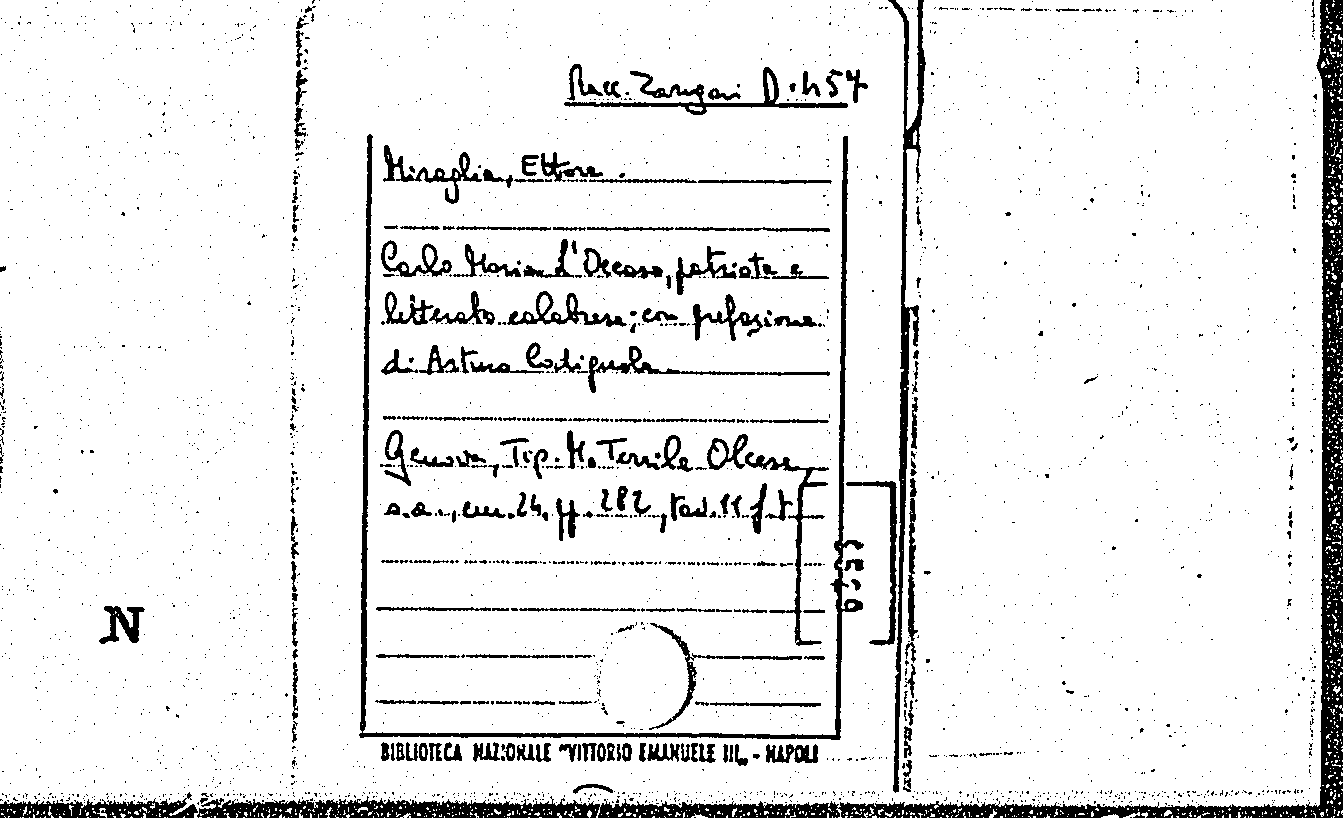 Racc. Zangari D. 457
Miraglia, Ettore.
Carlo Maria L'Occaso, patriota e
letterato calabrese; con prefazione
di Arturo Codignola.
Genova, Tip. M. Terrile Olcese,
s.a., cm. 24, pp. 282, tav. 11 f. t.
N
BIBLIOTECA NAZIONALE "VITTORIO EMANUELE III„ - NAPOLI